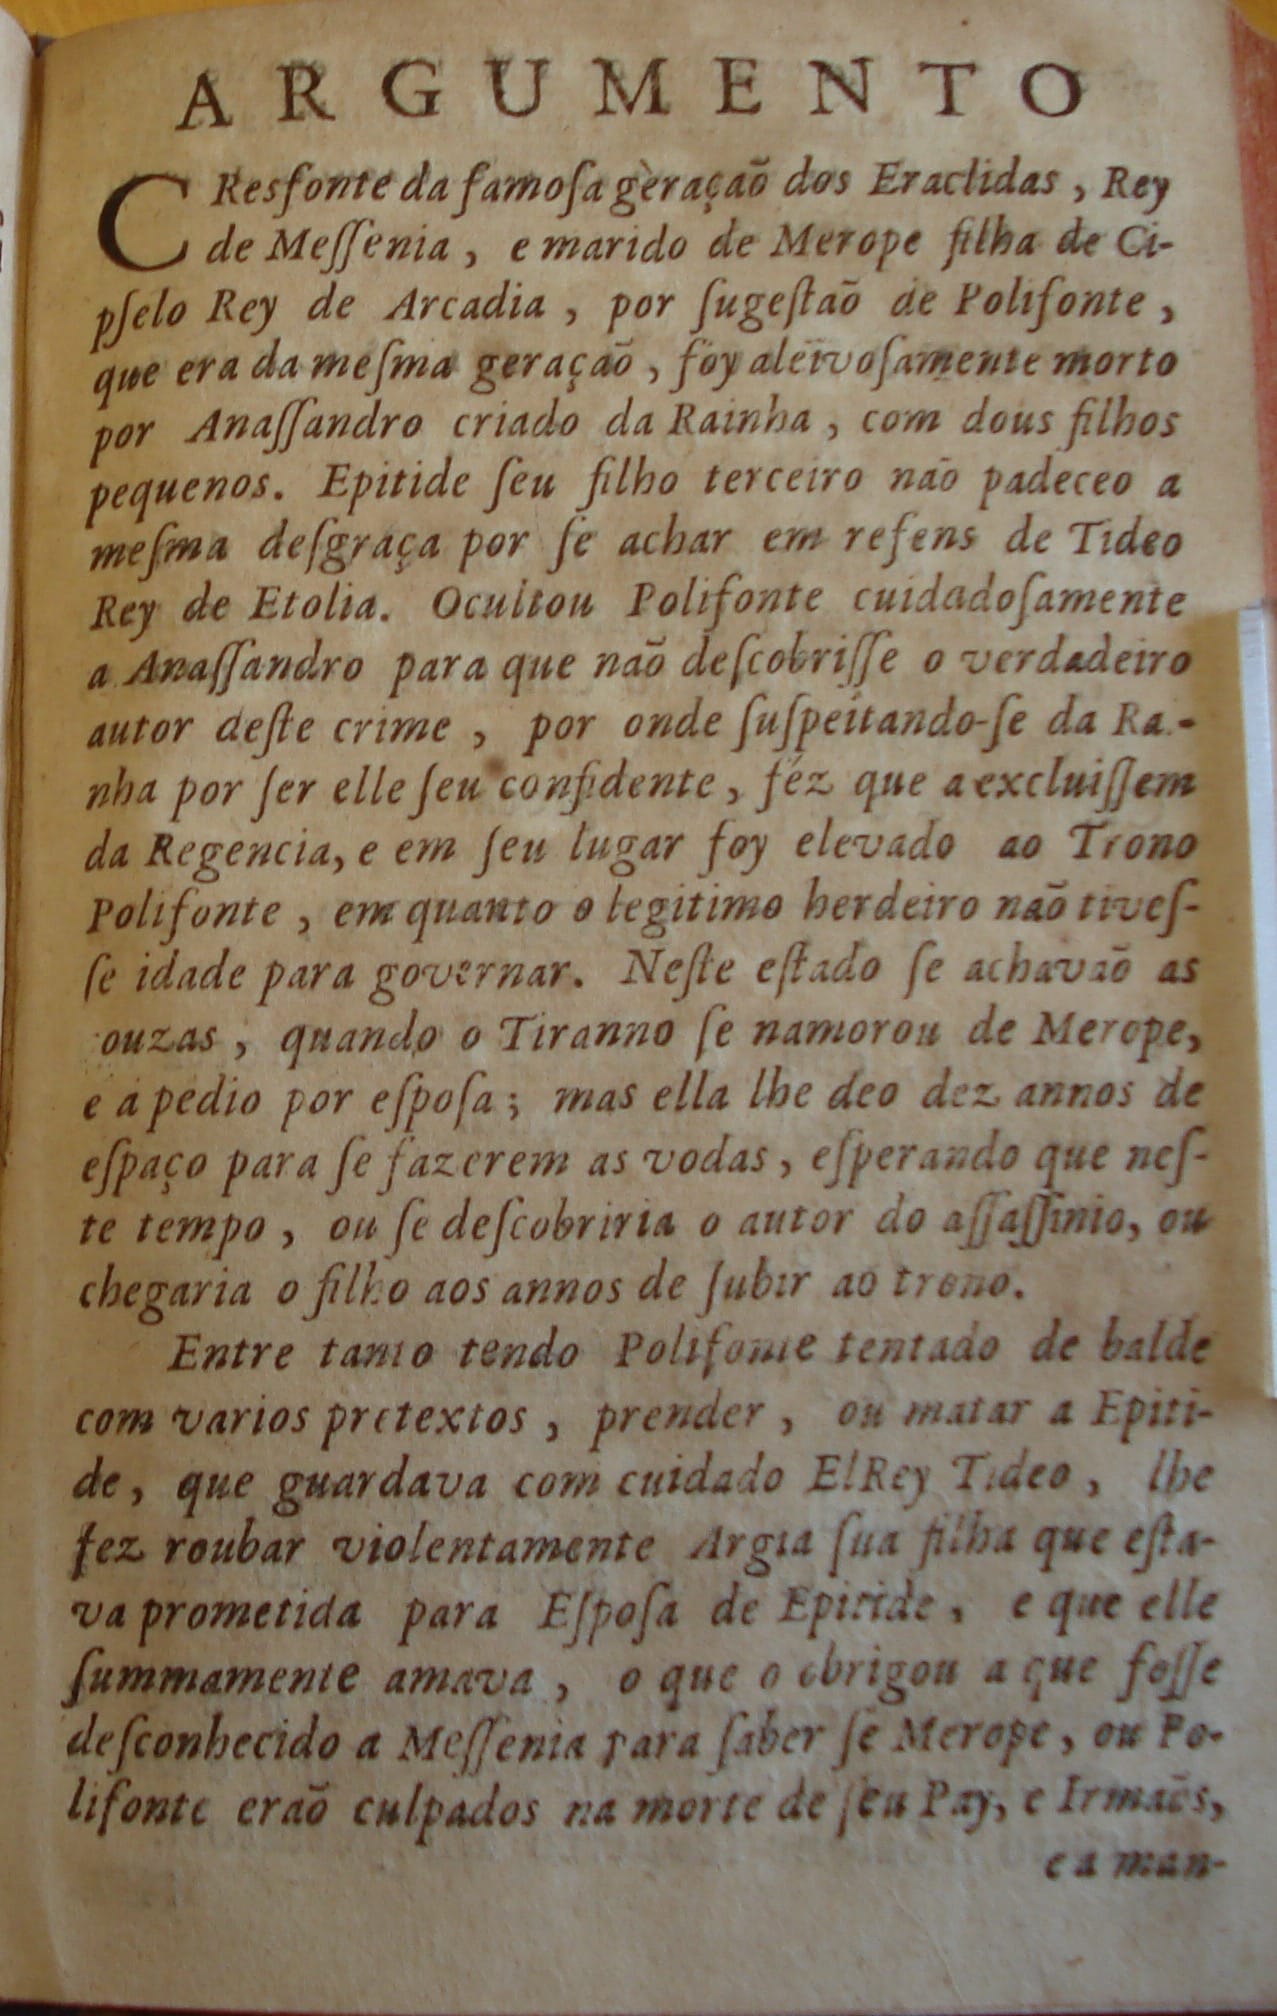 ARGUMENTO
CResfonte da famoſa gèraçaõ dos Eraclidas, Rey
de Meſſenia, e marido de Merope filha de Ci-
pſelo Rey de Arcadia, por ſugeſtaõ de Polifonte,
que era da meſma geraçaõ, foy aleivoſamente morto
por Anaſſandro criado da Rainha, com dous filhos
pequenos. Epitide ſeu filho terceiro naõ padeceo a
meſma deſgraça por ſe achar em refens de Tideo
Rey de Etolia. Ocultou Polifonte cuidadoſamente
a Anaſſandro para que naõ deſcobriſſe o verdadeiro
autor deſte crime, por onde ſuſpeitando-ſe da Ra-
nha por ſer elle ſeu confidente, féz que a excluiſſem
da Regencia, e em ſeu lugar foy elevado ao Trono
Polifonte, em quanto o legitimo herdeiro naõ tiveſ-
ſe idade para governar. Neſte eſtado ſe achavaõ as
ouzas, quando o Tiranno ſe namorou de Merope,
e a pedio por eſpoſa; mas ella lhe deo dez annos de
eſpaço para ſe fazerem as vodas, eſperando que neſ-
te tempo, ou ſe deſcobriria o autor do aſſaſſinio, ou
chegaria o filho aos annos de ſubir ao trono.
Entre tanto tendo Polifonte tentado de balde
com varios pretextos, prender, ou matar a Epiti-
de, que guardava com cuidado ElRey Tideo, lhe
fez roubar violentamente Argia ſua filha que eſta-
va prometida para Eſpoſa de Epitide, e que elle
ſummamente amava, o que o obrigou a que foſſe
deſconhecido a Meſſenia para ſaber ſe Merope, ou Po-
lifonte eraõ culpados na morte de ſeu Pay, e Irmaõs,
e a man-